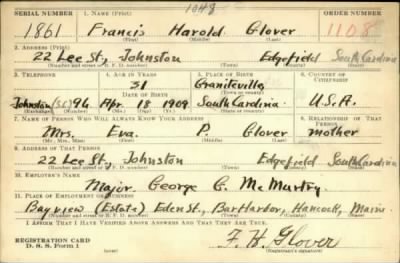 1048
SERIAL NUMBER 1. NAME (Print) ORDER NUMBER
1861 Francis Harold Glover 1108
(First) (Middle) (Last)
2. ADDRESS (Print)
22 Lee St, Johnston Edgefield South Carolina
(Number and street or R. F. D. number) (Town) (County) (State)
3. TELEPHONE 4. AGE IN YEARS 5. PLACE OF BIRTH 6. COUNTRY OF CITIZENSHIP
31 Graniteville
DATE OF BIRTH (Town or county)
Johnston (SC) 94 Apr. 18 1909 South Carolina U.S.A.
(Exchange) (Number) (Mo.) (Day) (Yr.) (State or country)
7. NAME OF PERSON WHO WILL ALWAYS KNOW YOUR ADDRESS 8. RELATIONSHIP OF THAT PERSON
Mrs. Eva. P. Glover mother
(Mr., Mrs., Miss) (First) (Middle) (Last)
9. ADDRESS OF THAT PERSON
22 Lee St, Johnston Edgefield South Carolina
(Number and street or R. F. D. number) (Town) (County) (State)
10. EMPLOYER'S NAME
Major. George G. McMurtry.
11. PLACE OF EMPLOYMENT OR BUSINESS
Bay view (Estate) Eden St., Bar Harbor, Hancock, Maine
(Number and street or R. F. D. number) (Town) (County) (State)
I AFFIRM THAT I HAVE VERIFIED ABOVE ANSWERS AND THAT THEY ARE TRUE.
REGISTRATION CARD
D. S. S. Form 1
F. H. Glover
(Registrant's signature)